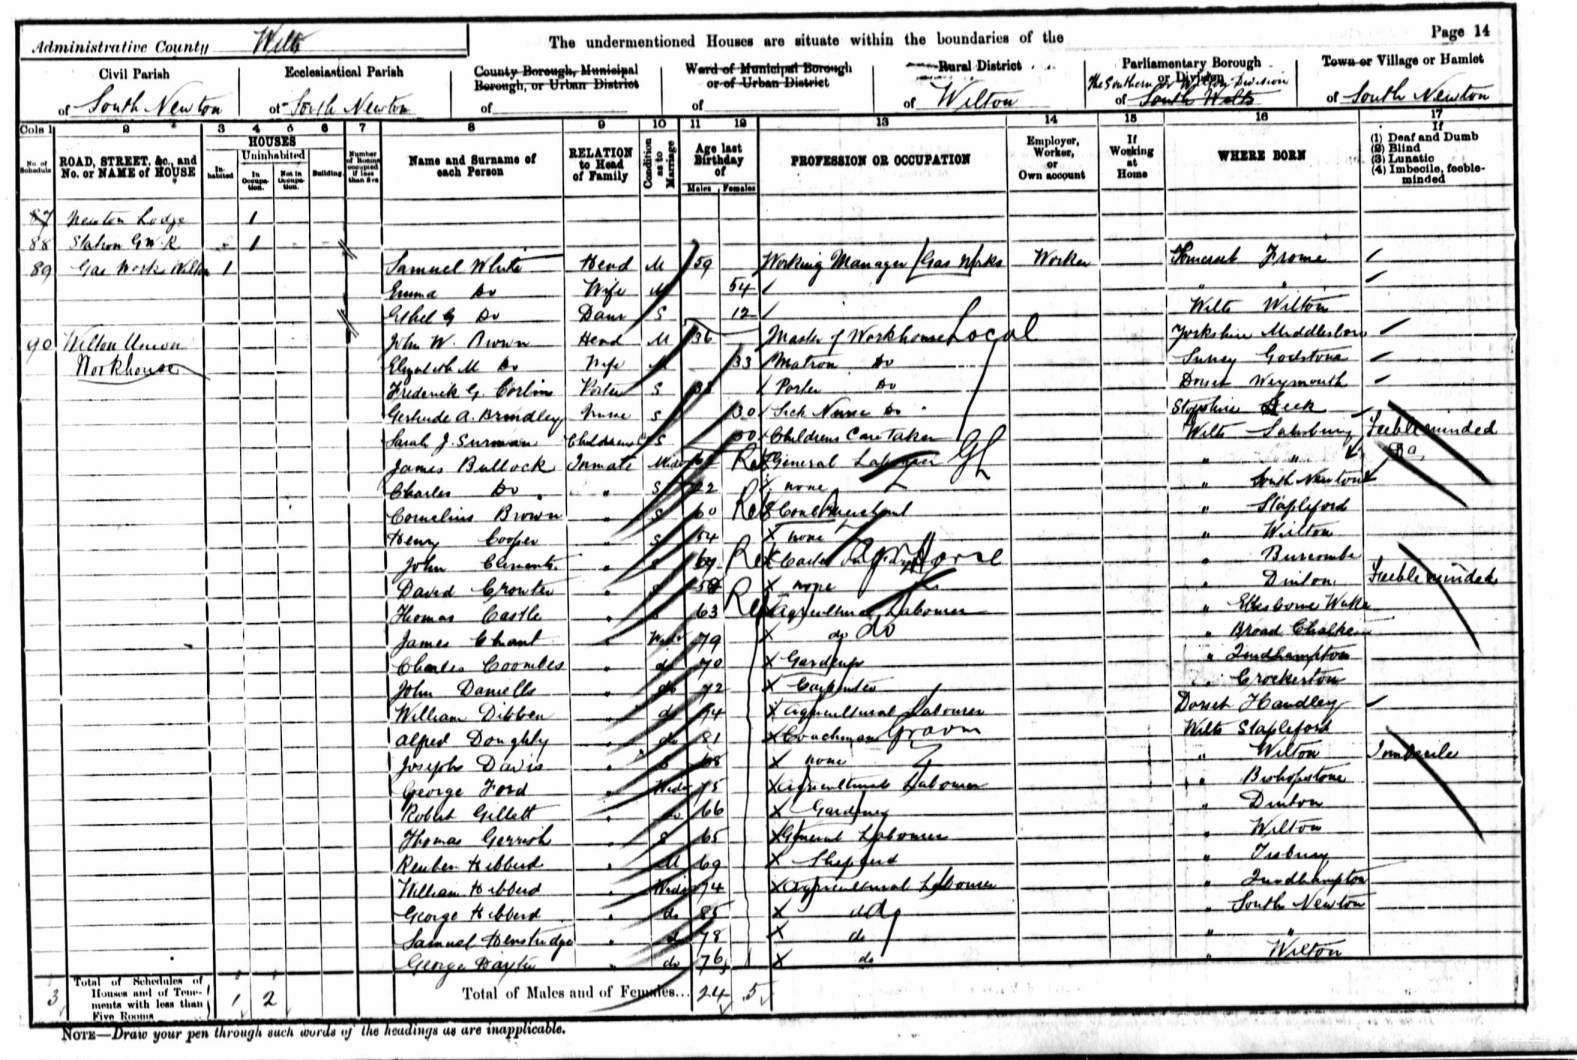 Page 14
Administrative County Wilts
The undermentioned Houses are situate within the boundaries of the
Civil Parish
of South Newton
Ecclesiastical Parish
of South Newton
County Borough, Municipal
Borough, or Urban District
of
Ward of Municipal Borough
or of Urban District
of
Rural District
of Wilton
Parliamentary Borough
or Division
The Southern or Wilton Division
of South Wilts
Town or Village or Hamlet
of South Newton
Cols 1 2 3 4 5 6 7 8 9 10 11 12 13 14 15 16 17
No. of Schedule
ROAD, STREET, &c., and
No. or NAME of HOUSE
HOUSES
Inhabited
Uninhabited
In Occupation.
Not in Occupation.
Building.
Number of Rooms occupied if less than five
Name and Surname of
each Person
RELATION
to Head
of Family
Condition as to Marriage
Age last
Birthday
of
Males Females
PROFESSION OR OCCUPATION
Employer,
Worker,
or
Own account
If
Working
at
Home
WHERE BORN
If
(1) Deaf and Dumb
(2) Blind
(3) Lunatic
(4) Imbecile, feeble-
minded
87 Newton Lodge 1
88 Station G.W.R 1
89 Gas Works Wilton 1 Samuel White Head M 59 Working Manager (Gas Works Worker Somerset Frome
Emma Do Wife M 54 " "
Ethel G Do Daur S 12 Wilts Wilton
90 Wilton Union John W. Brown Head M 36 Master of Workhouse Local Yorkshire Middlesboro
Workhouse Elizabeth M Do Wife M 33 Matron Do Surrey Godstone
Frederick G. Corbin Porter S Porter Do Dorset Weymouth
Gertrude A. Brindley Nurse S 30 Sick Nurse Do Leek
Sarah J. Surman S 50 Childrens Caretaker Wilts Salisbury Feebleminded
James Bullock Inmate Ret General Labourer GL " " Do
Charles Do " S 22 none " South Newton
Cornelius Brown " S 60 Ret Coal Merchant " Stapleford
Henry Cooper " S 54 X none " Wilton
John Clements " S Ret Horse " Burcombe
David Crowter " S X none " Dinton Feebleminded
Thomas Castle " S 63 Ret Agricultural Labourer " Ebbesborne Wake
James Chant " Widr 79 X do do " Broad Chalke
Charles Coombes " do 70 X Gardener "
John Daniells " do 72 X Carpenter " Crockerton
William Dibben " do 74 X Agricultural Labourer Dorset Handley
Alfred Doughty " do 81 X Coachman Groom Wilts Stapleford
Joseph Davis " S X none " Wilton Imbecile
George Ford " Widr 75 X Agricultural Labourer " Bishopstone
Robert Gillett " do 66 X Gardener " Dinton
Thomas Gerrish " S 65 X General Labourer " Wilton
Reuben Hibberd " M 69 X Sheperd " Tisbury
William Hibberd " Widr 74 X Agricultural Labourer "
George Hibberd " do 85 X do " South Newton
Samuel Henstridge " do 78 X do " "
George Hayter " do 76 X do " Wilton
3 Total of Schedules of
Houses and of Tene-
ments with less than
Five Rooms
1 2 Total of Males and of Females... 24 5
NOTE—Draw your pen through such words of the headings as are inapplicable.